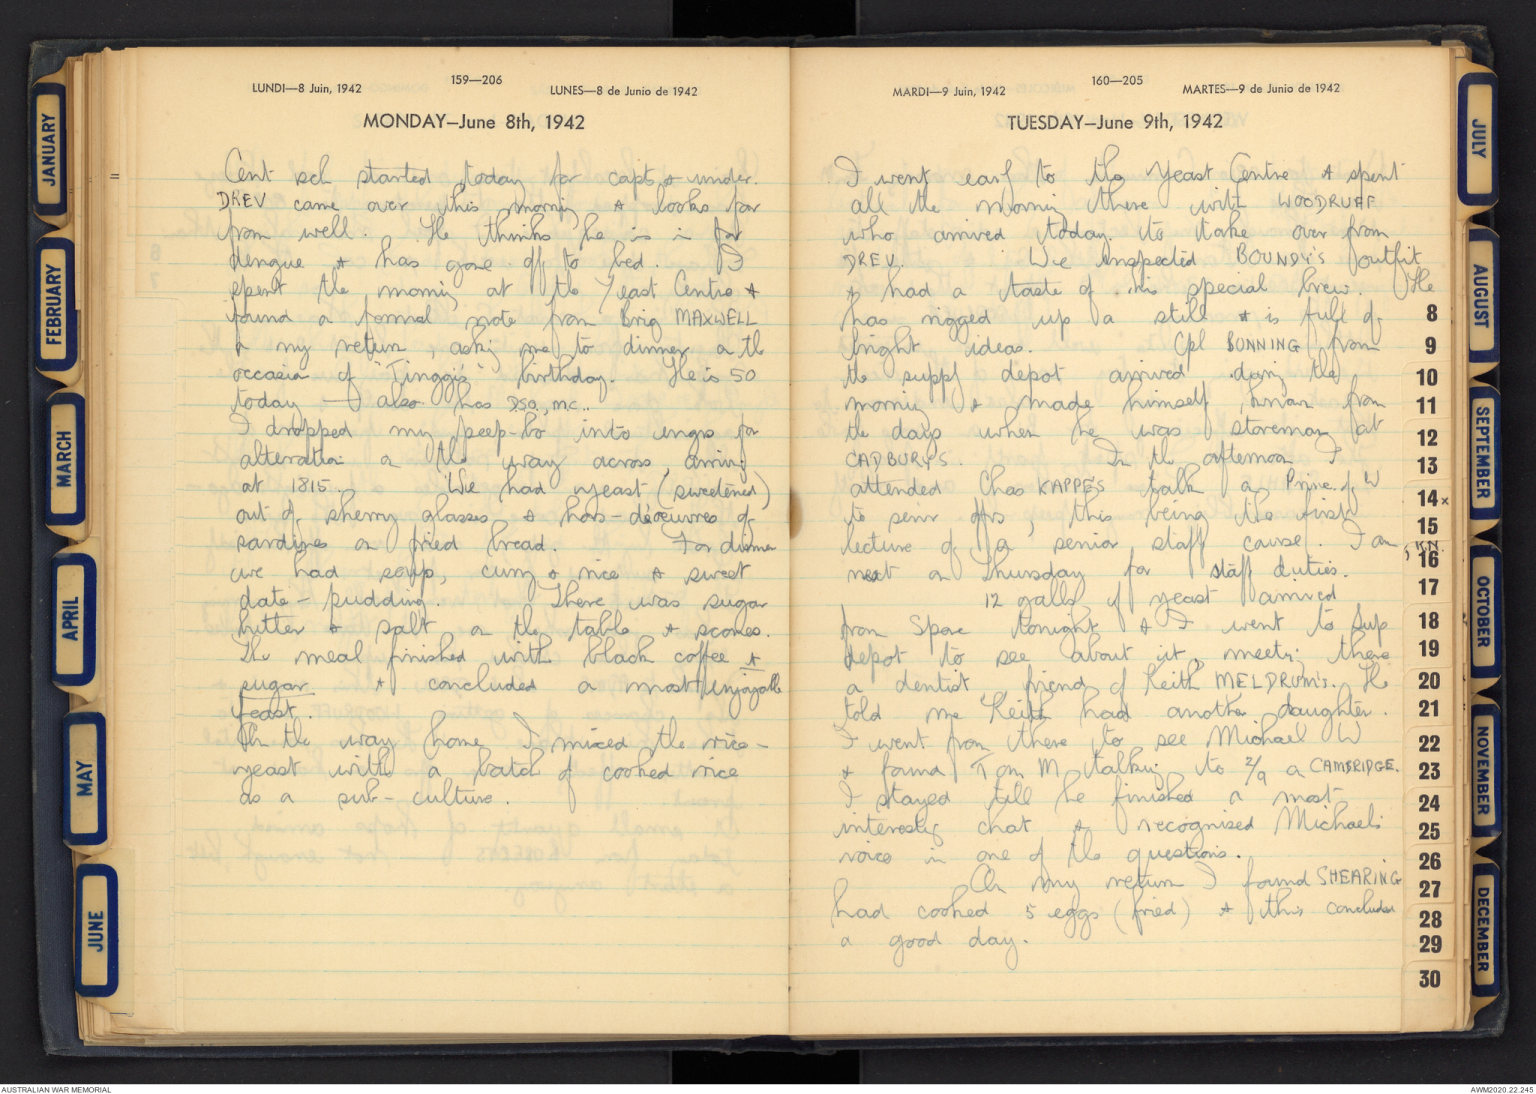 JANUARY
FEBRUARY
MARCH
APRIL
MAY
JUNE
159—206
LUNDI—8 Juin, 1942 LUNES—8 de Junio de 1942
MONDAY—June 8th, 1942
Cent sch started today for capts & under.
DREV came over this morning & looks far
from well. He thinks he is in for
dengue & has gone off to bed. I
spent the morning at the Yeast Centre &
found a formal note from Brig MAXWELL
on my return, asking me to dinner on the
occasion of "Tinggi's" birthday. He is 50
today — also has DSO, MC..
I dropped my peep-bo into engrs for
alteration on the way across, arriving
at 1815. We had yeast (sweetened)
out of sherry glasses & hors-d'oeuvres of
sardines on fried bread. For dinner
we had soup, curry & rice & sweet
date-pudding. There was sugar
butter & salt on the table & scones.
The meal finished with black coffee &
sugar & concluded a most enjoyable
feast.
On the way home I mixed the rice-
yeast with a batch of cooked rice
as a sub-culture.
160—205
MARDI—9 Juin, 1942 MARTES—9 de Junio de 1942
TUESDAY—June 9th, 1942
I went early to the Yeast Centre & spent
all the morning there with WOODRUFF
who arrived today to take over from
DREV. We inspected BOUNDY'S outfit
& had a taste of his special brew. He
has rigged up a still & is full of
bright ideas. Cpl BUNNING from
the supply depot arrived during the
morning & made himself known from
the days when he was storeman at
CADBURYS. In the afternoon I
attended Chas KAPPE'S talk on Princ. of W
to senior offrs, this being the first
lecture of a senior staff course. I am
next on Thursday for staff duties.
12 galls of yeast arrived
from Spore tonight & I went to Sup
depot to see about it, meeting there
a dentist, friend of Keith MELDRUM'S. He
told me Keith had another daughter.
I went from there to see Michael W
& found Tom M talking to 2/9 on CAMBRIDGE.
I stayed till he finished a most
interesting chat & recognised Michael's
voice in one of the questions.
On my return I found SHEARING
had cooked 5 eggs (fried) & this concluded
a good day.
JULY
AUGUST
SEPTEMBER
OCTOBER
NOVEMBER
DECEMBER
8
9
10
11
12
13
14x
15
16
17
18
19
20
21
22
23
24
25
26
27
28
29
30
AUSTRALIAN WAR MEMORIAL
AWM2020.22.245